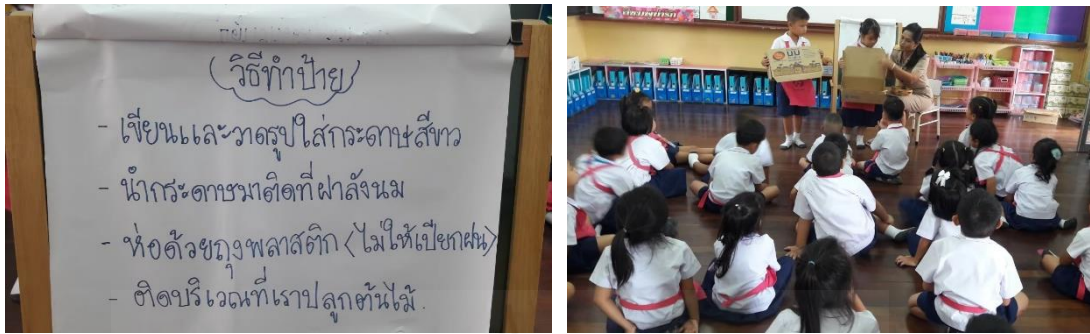 วิธีทำป้าย
- เขียนและวาดรูปใส่กระดาษสีขาว
- นำกระดาษมาติดที่ฝาลังนม
- ห่อด้วยถุงพลาสติก (ไม่ให้เปียกฝน)
- ติดบริเวณที่เราปลูกต้นไม้.